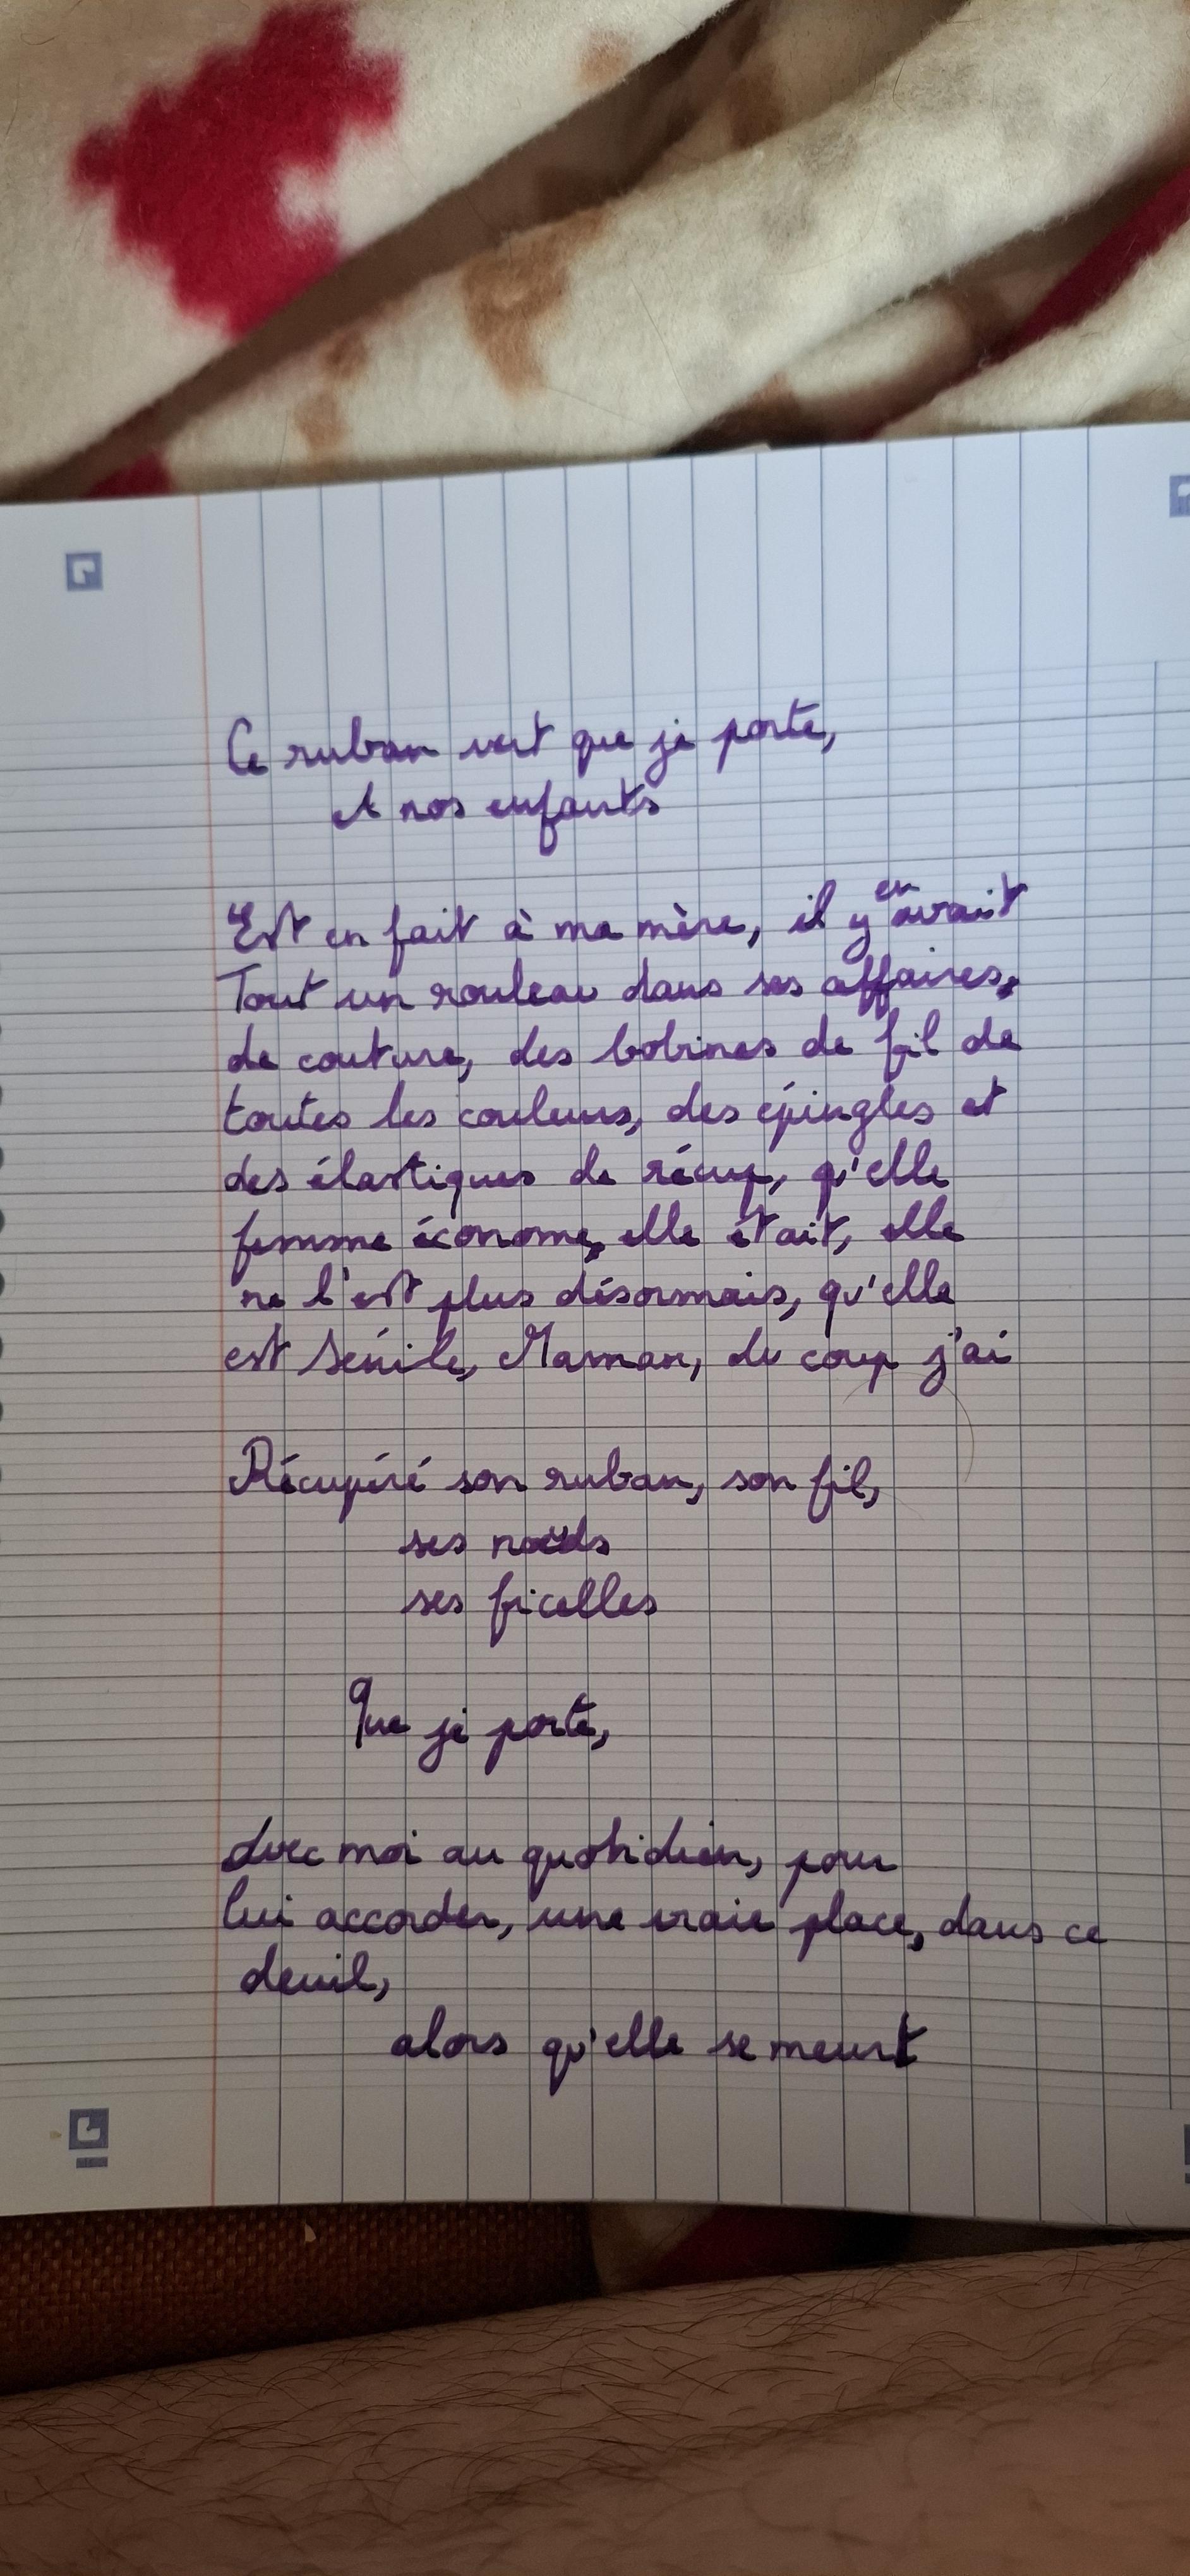 Ce ruban vert que je porte,
et nos enfants
Est en fait à ma mère, il y en avait
Tout un rouleau dans ses affaires,
de couture, des bobines de fil de
toutes les couleurs, des épingles et
des élastiques de récup, qu'elle
femme économe, elle était, elle
ne l'est plus désormais, qu'elle
est sénile, Maman, du coup j'ai
Récupéré son ruban, son fil,
ses nœuds
ses ficelles
Que je porte,
avec moi au quotidien, pour
lui accorder, une vraie place, dans ce
deuil,
alors qu'elle se meurt